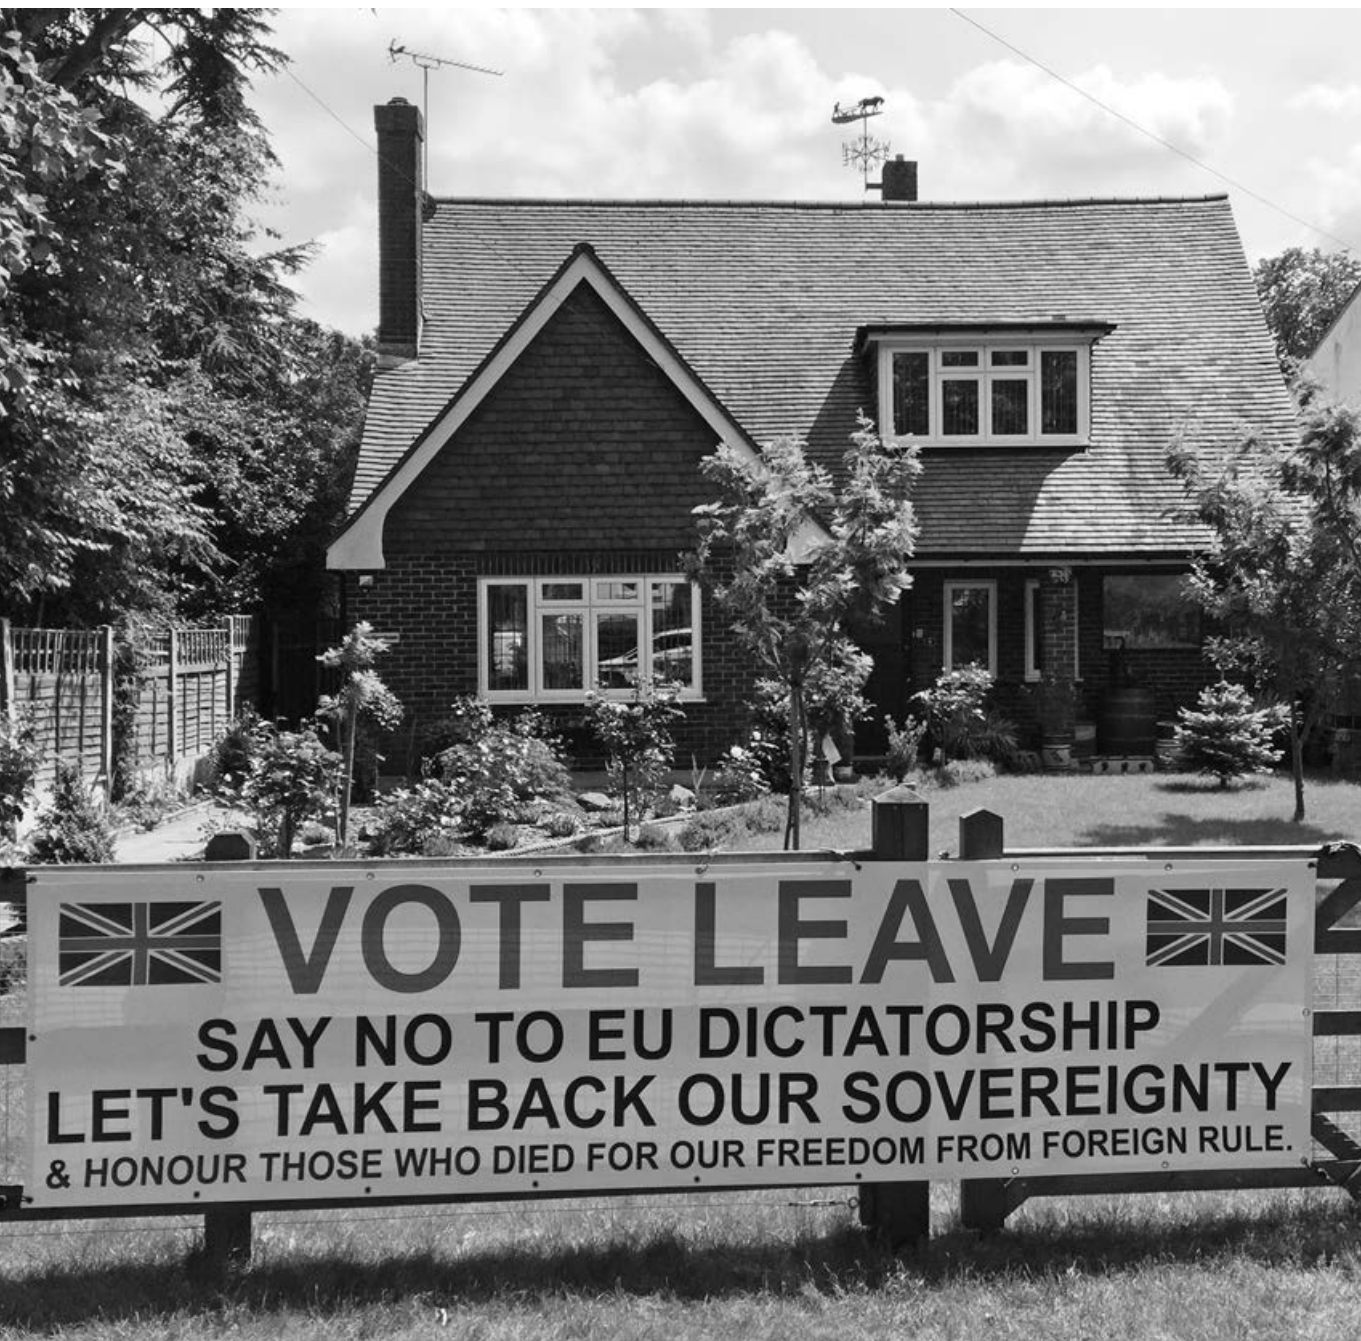 VOTE LEAVE
SAY NO TO EU DICTATORSHIP
LET'S TAKE BACK OUR SOVEREIGNTY
& HONOUR THOSE WHO DIED FOR OUR FREEDOM FROM FOREIGN RULE.